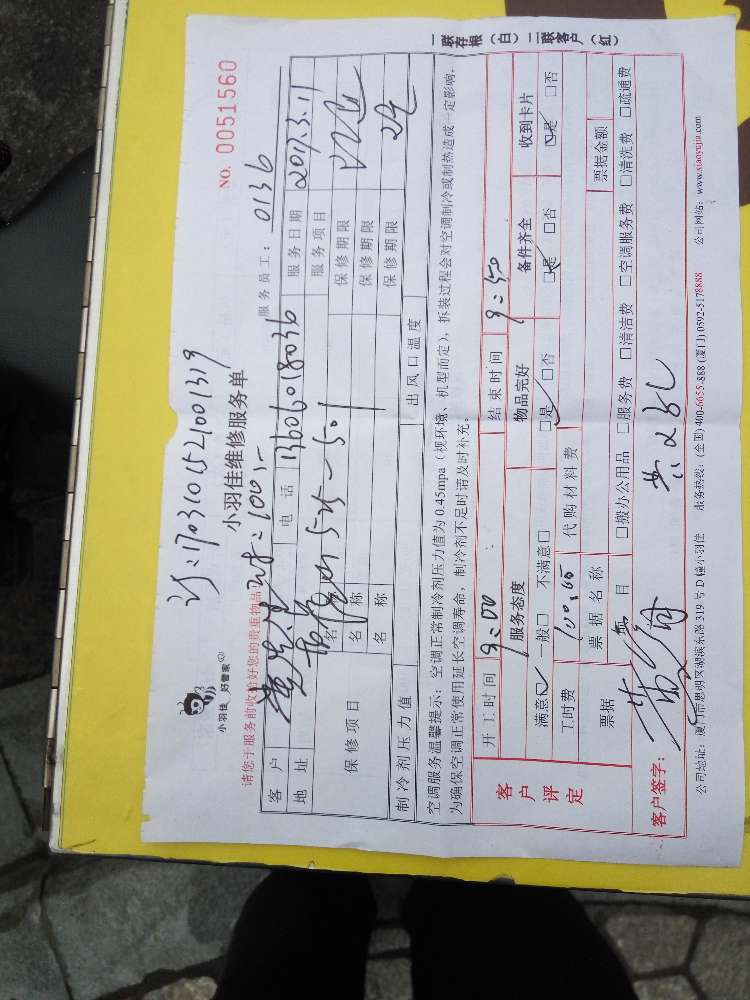 小羽佳 好管家
小羽佳维修服务单
NO. 0051560
请您于服务前收拾好您的贵重物品
服务员工: 0136
客户
电话 13606018036
服务日期 2017.3.11
地址
服务项目
保修项目
名称
保修期限
名称
保修期限
名称
保修期限
制冷剂压力值
出风口温度
空调服务温馨提示: 空调正常制冷剂压力值为 0.45mpa (视环境、机型而定), 拆装过程会对空调制冷或制热造成一定影响,
为确保空调正常使用延长空调寿命, 制冷剂不足时请及时补充。
客户评定
开工时间 9:00
结束时间 9:50
服务态度
物品完好
备件齐全
收到卡片
满意☑ 一般□ 不满意□
☑是 □否
☑是 □否
☑是 □否
工时费
代购材料费
票据
票据名称
票据金额
项目
□搬办公用品 □服务费 □清洁费 □空调服务费 □清洗费 □疏通费
客户签字:
公司地址: 厦门市思明区湖滨东路 319 号 D 幢小羽佳 服务热线: (全国) 400-6655-888 (厦门) 0592-5178888 公司网站: www.xiaoyujia.com
一联存根 (白) 二联客户 (红)